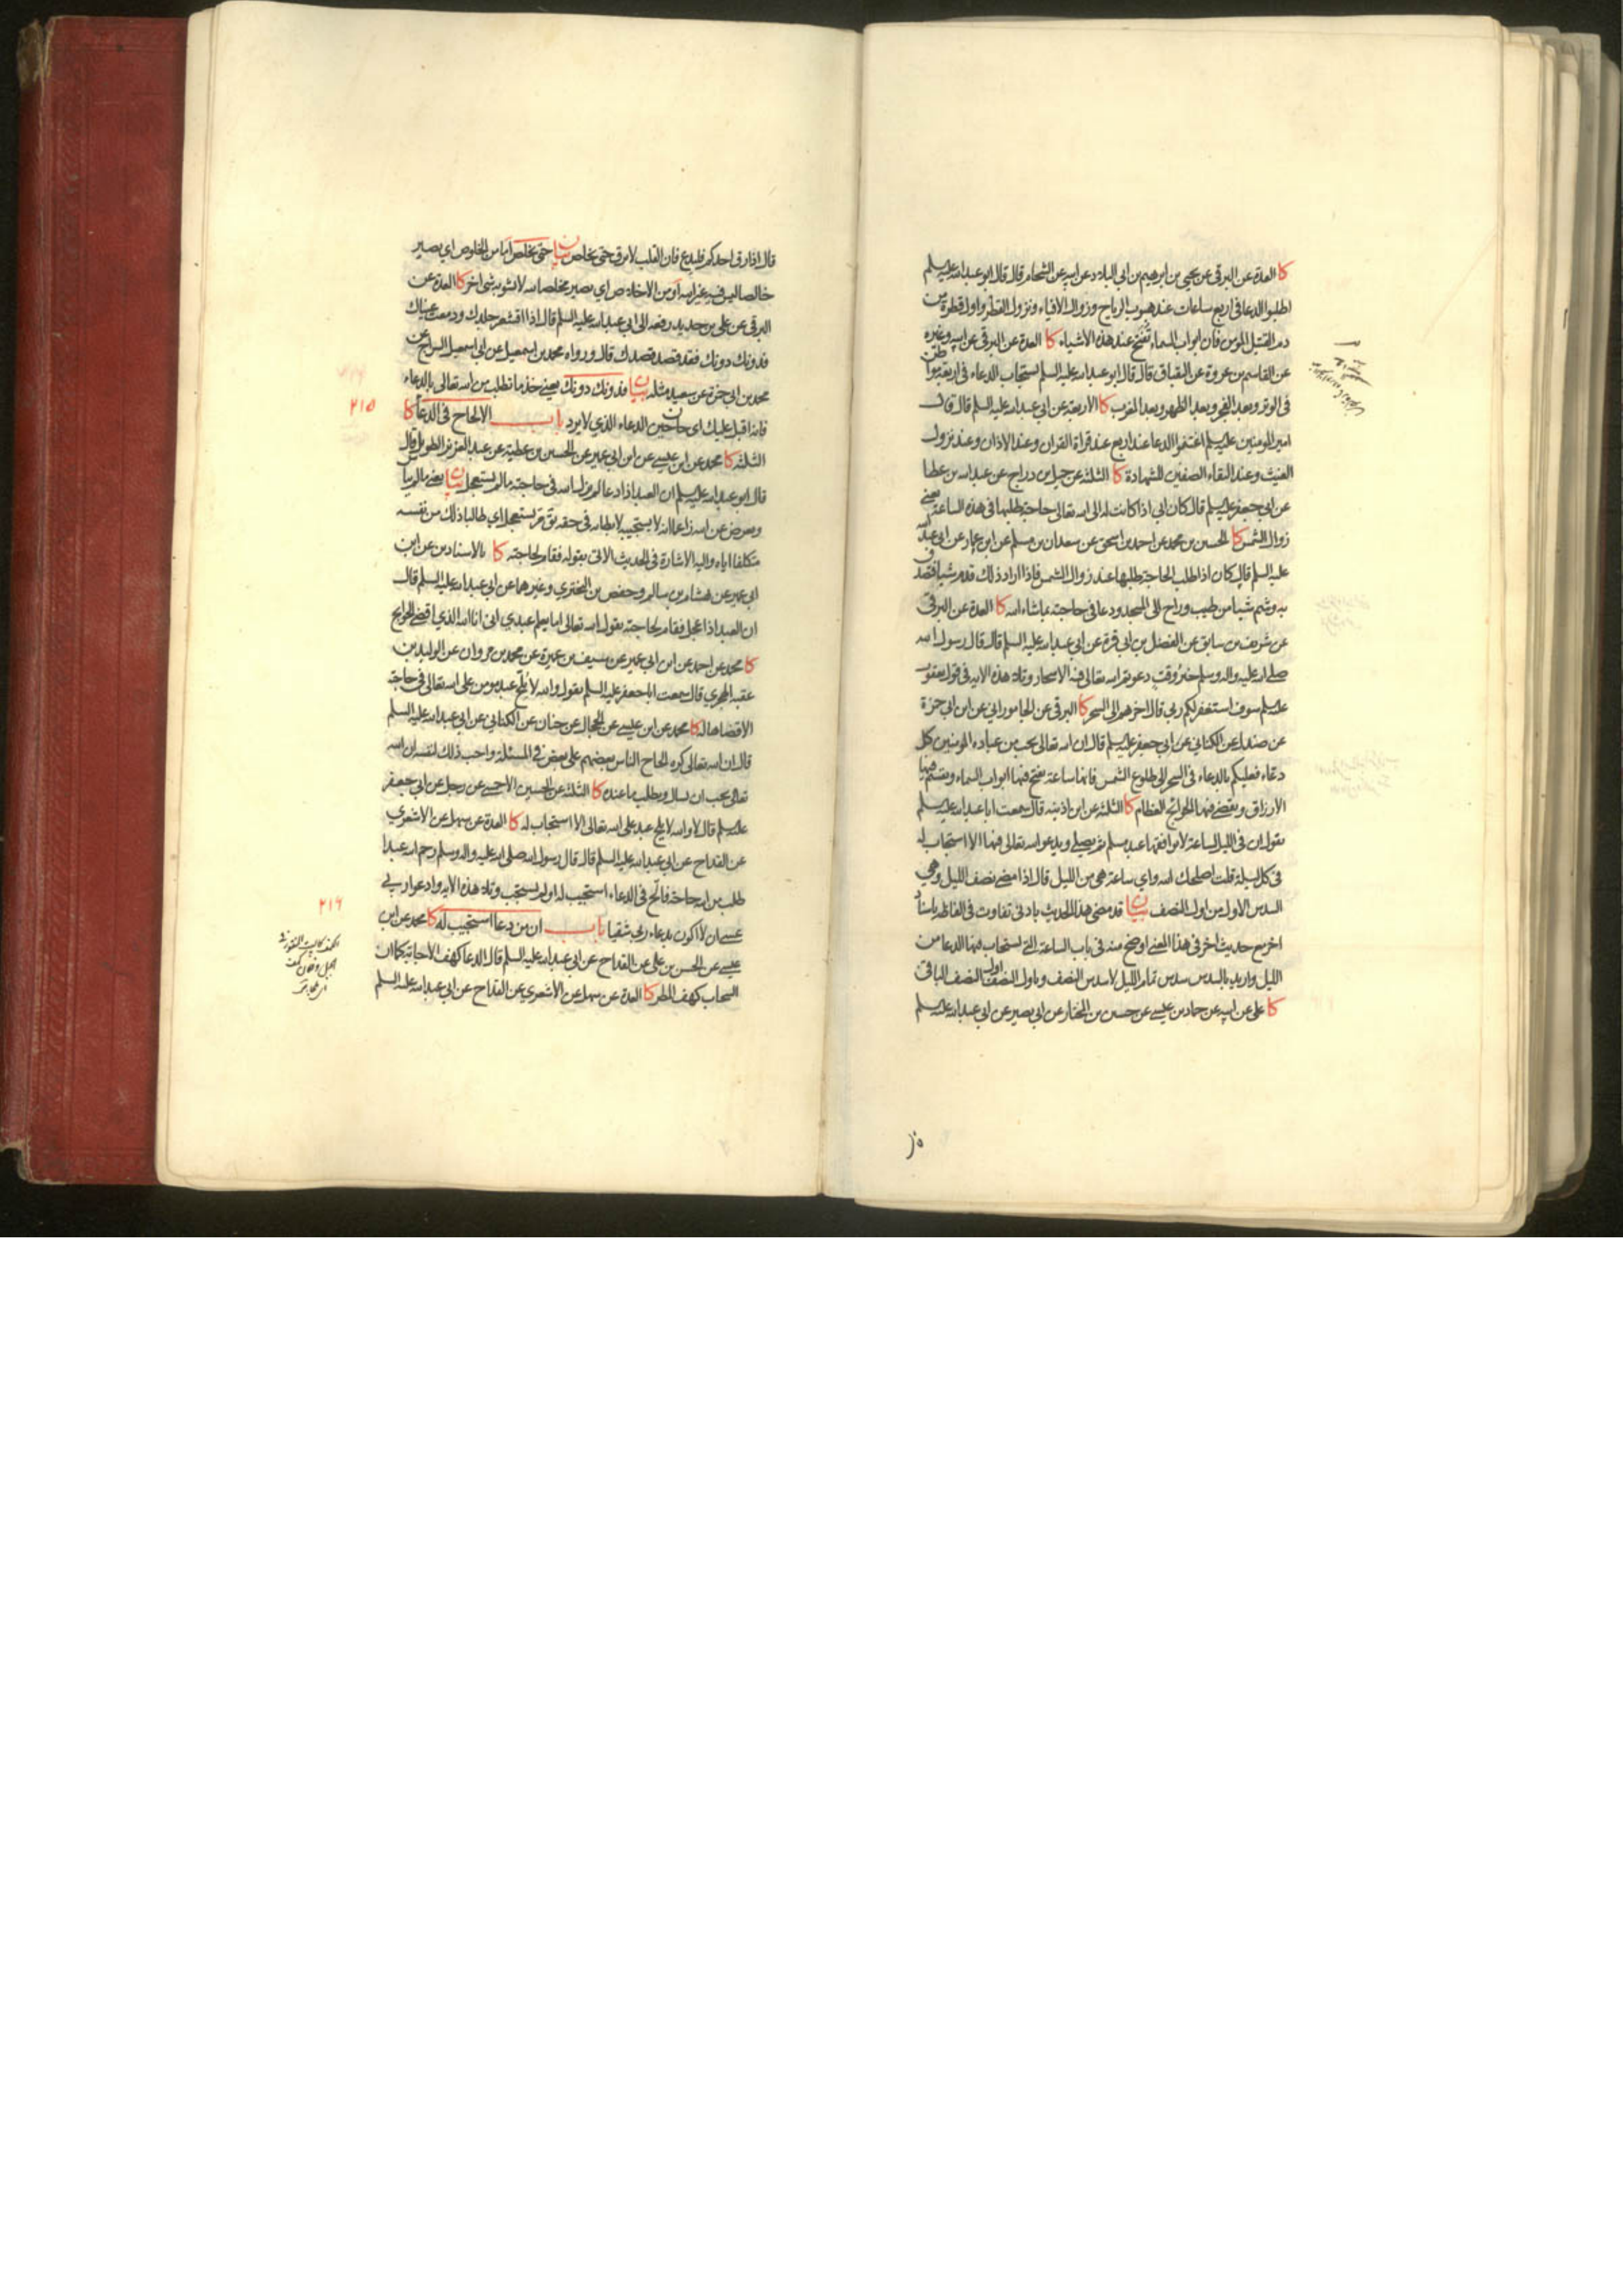 كا العدة عن البرقي عن يحيى بن ابرهيم بن ابي البلاد عن ابيه عن الشحام قال قال ابو عبد الله عليه السلم
اطلبوا الدعا في اربع ساعات عند هبوب الرياح وزوال الافياء ونزول القطر واول قطرة من
دم القتيل المومن فان ابواب السماء تفتح عند هذه الاشياء كا العدة عن البرقي عن ابيه وغيره
عن القاسم بن عروة عن البقباق قال قال ابو عبد الله عليه السلم يستجاب الدعاء في اربعة مواطن
في الوتر وبعد الفجر وبعد الظهر وبعد المغرب كا الاربعة عن ابي عبد الله عليه السلم قال قال
امير المومنين عليه السلم اغتنموا الدعا عند اربع عند قراة القران وعند الاذان وعند نزول
الغيث وعند التقاء الصفين للشهادة كا الثلثة عن جميل بن دراج عن عبد الله بن عطا
عن ابي جعفر عليه السلم قال كان ابي اذا كانت له الى الله تعالى حاجة طلبها في هذه الساعة يعني
زوال الشمس كا الحسين بن محمد عن احمد بن اسحق عن سعدان بن مسلم عن ابن عمار عن ابي عبد الله
عليه السلم قال كان اذا طلب الحاجة طلبها عند زوال الشمس فاذا اراد ذلك قدم شيا فتصدق
به وشم شيا من طيب وراح الى المسجد ودعا في حاجته بما شاء الله كا العدة عن البرقي
عن شريف بن سابق عن الفضل بن ابي قرة عن ابي عبد الله عليه السلم قال قال رسول الله
صلى الله عليه واله وسلم خير وقت دعوتم الله تعالى فيه الاسحار وتلا هذه الاية في قول يعقوب
عليه السلم سوف استغفر لكم ربي قال اخرهم الى السحر كا البرقي عن الجاموراني عن ابن ابي حمزة
عن صندل عن الكناني عن ابي جعفر عليه السلم قال ان الله تعالى يحب من عباده المومنين كل
دعاء فعليكم بالدعاء في السحر الى طلوع الشمس فانها ساعة تفتح فيها ابواب السماء وتقسم فيها
الارزاق وتقضى فيها الحوائج العظام كا الثلثة عن ابن اذينة قال سمعت ابا عبد الله عليه السلم
يقول ان في الليل لساعة لا يوافقها عبد مسلم ثم يصلي ويدعو الله تعالى فيها الا استجاب له
في كل ليلة قلت اصلحك الله واي ساعة هي من الليل قال اذا مضى نصف الليل وهي
السدس الاول من اول النصف بيان قد مضى هذا الحديث بادنى تفاوت في الفاظه باسناد
اخر مع حديث اخر في هذا المعنى اوضح منه في باب الساعة التي يستجاب فيها الدعا من
الليل واريد بالسدس سدس تمام الليل لا سدس النصف وباول النصف اول النصف الباقي
كا علي عن ابيه عن حماد بن عيسى عن حسين بن المختار عن ابي بصير عن ابي عبد الله عليه السلم
قال اذا رق احدكم فليدع فان القلب لا يرق حتى يخلص بيان حتى يخلص اما من الخلوص اي يصير
خالصا ليس فيه غير الله او من الاخلاص اي يصير مخلصا لله لا يشوبه شي اخر كا العدة عن
البرقي عن علي بن حديد رفعه الى ابي عبد الله عليه السلم قال اذا اقشعر جلدك ودمعت عيناك
فدونك دونك فقد قصد قصدك قال ورواه محمد بن اسمعيل عن ابي اسمعيل السراج عن
محمد بن ابي حمزة عن سعيد مثله بيان فدونك دونك يعني خذ ما تطلب من الله تعالى بالدعاء
فانه اقبل عليك اي حان حين الدعاء الذي لا يرد باب الالحاح في الدعا كا
٢١٥
الثلثة كا محمد عن ابن عيسى عن ابن ابي عمير عن الحسين بن عطية عن عبد العزيز الطويل قال
قال ابو عبد الله عليه السلم ان العبد اذا دعا لم يزل الله في حاجته ما لم يستعجل بيان يعني ما لم يياس
ويعرض عن الله زاعما انه لا يستجيب لابطائه في حقه ثم يستعجل اي طالبا ذلك من نفسه
متكلفا اياه واليه الاشارة في الحديث الاتي بقوله فقام لحاجته كا بالاسنادين عن ابن
ابي عمير عن هشام بن سالم وحفص بن البختري وغيرهما عن ابي عبد الله عليه السلم قال
ان العبد اذا عجل فقام لحاجته يقول الله تعالى اما يعلم عبدي اني انا الله الذي اقضي الحوايج
كا محمد عن احمد عن ابن ابي عمير عن سيف بن عميرة عن محمد بن مروان عن الوليد بن
عقبة الهجري قال سمعت ابا جعفر عليه السلم يقول والله لا يلح عبد مومن على الله تعالى في حاجة
الا قضاها له كا محمد عن ابن عيسى عن الحجال عن حنان عن الكناني عن ابي عبد الله عليه السلم
قال ان الله تعالى كره الحاح الناس بعضهم على بعض في المسئلة واحب ذلك لنفسه ان الله
تعالى يحب ان يسال ويطلب ما عنده كا الثلثة عن الحسين الاحمسي عن رجل عن ابي جعفر
عليه السلم قال لا والله لا يلح عبد على الله تعالى الا استجاب له كا العدة عن سهل عن الاشعري
عن القداح عن ابي عبد الله عليه السلم قال قال رسول الله صلى الله عليه واله وسلم رحم الله عبدا
طلب من الله حاجة فالح في الدعاء استجيب له او لم يستجب وتلا هذه الاية وادعوا ربي
عسى ان لا اكون بدعاء ربي شقيا باب ان من دعا استجيب له كا محمد عن ابن
٢١٦
عيسى عن الحسن بن علي عن القداح عن ابي عبد الله عليه السلم قال الدعا كهف الاجابة كما ان
السحاب كهف المطر كا العدة عن سهل عن الاشعري عن القداح عن ابي عبد الله عليه السلم
الكهف كالبيت المنقور في
الجبل وفلان كهف